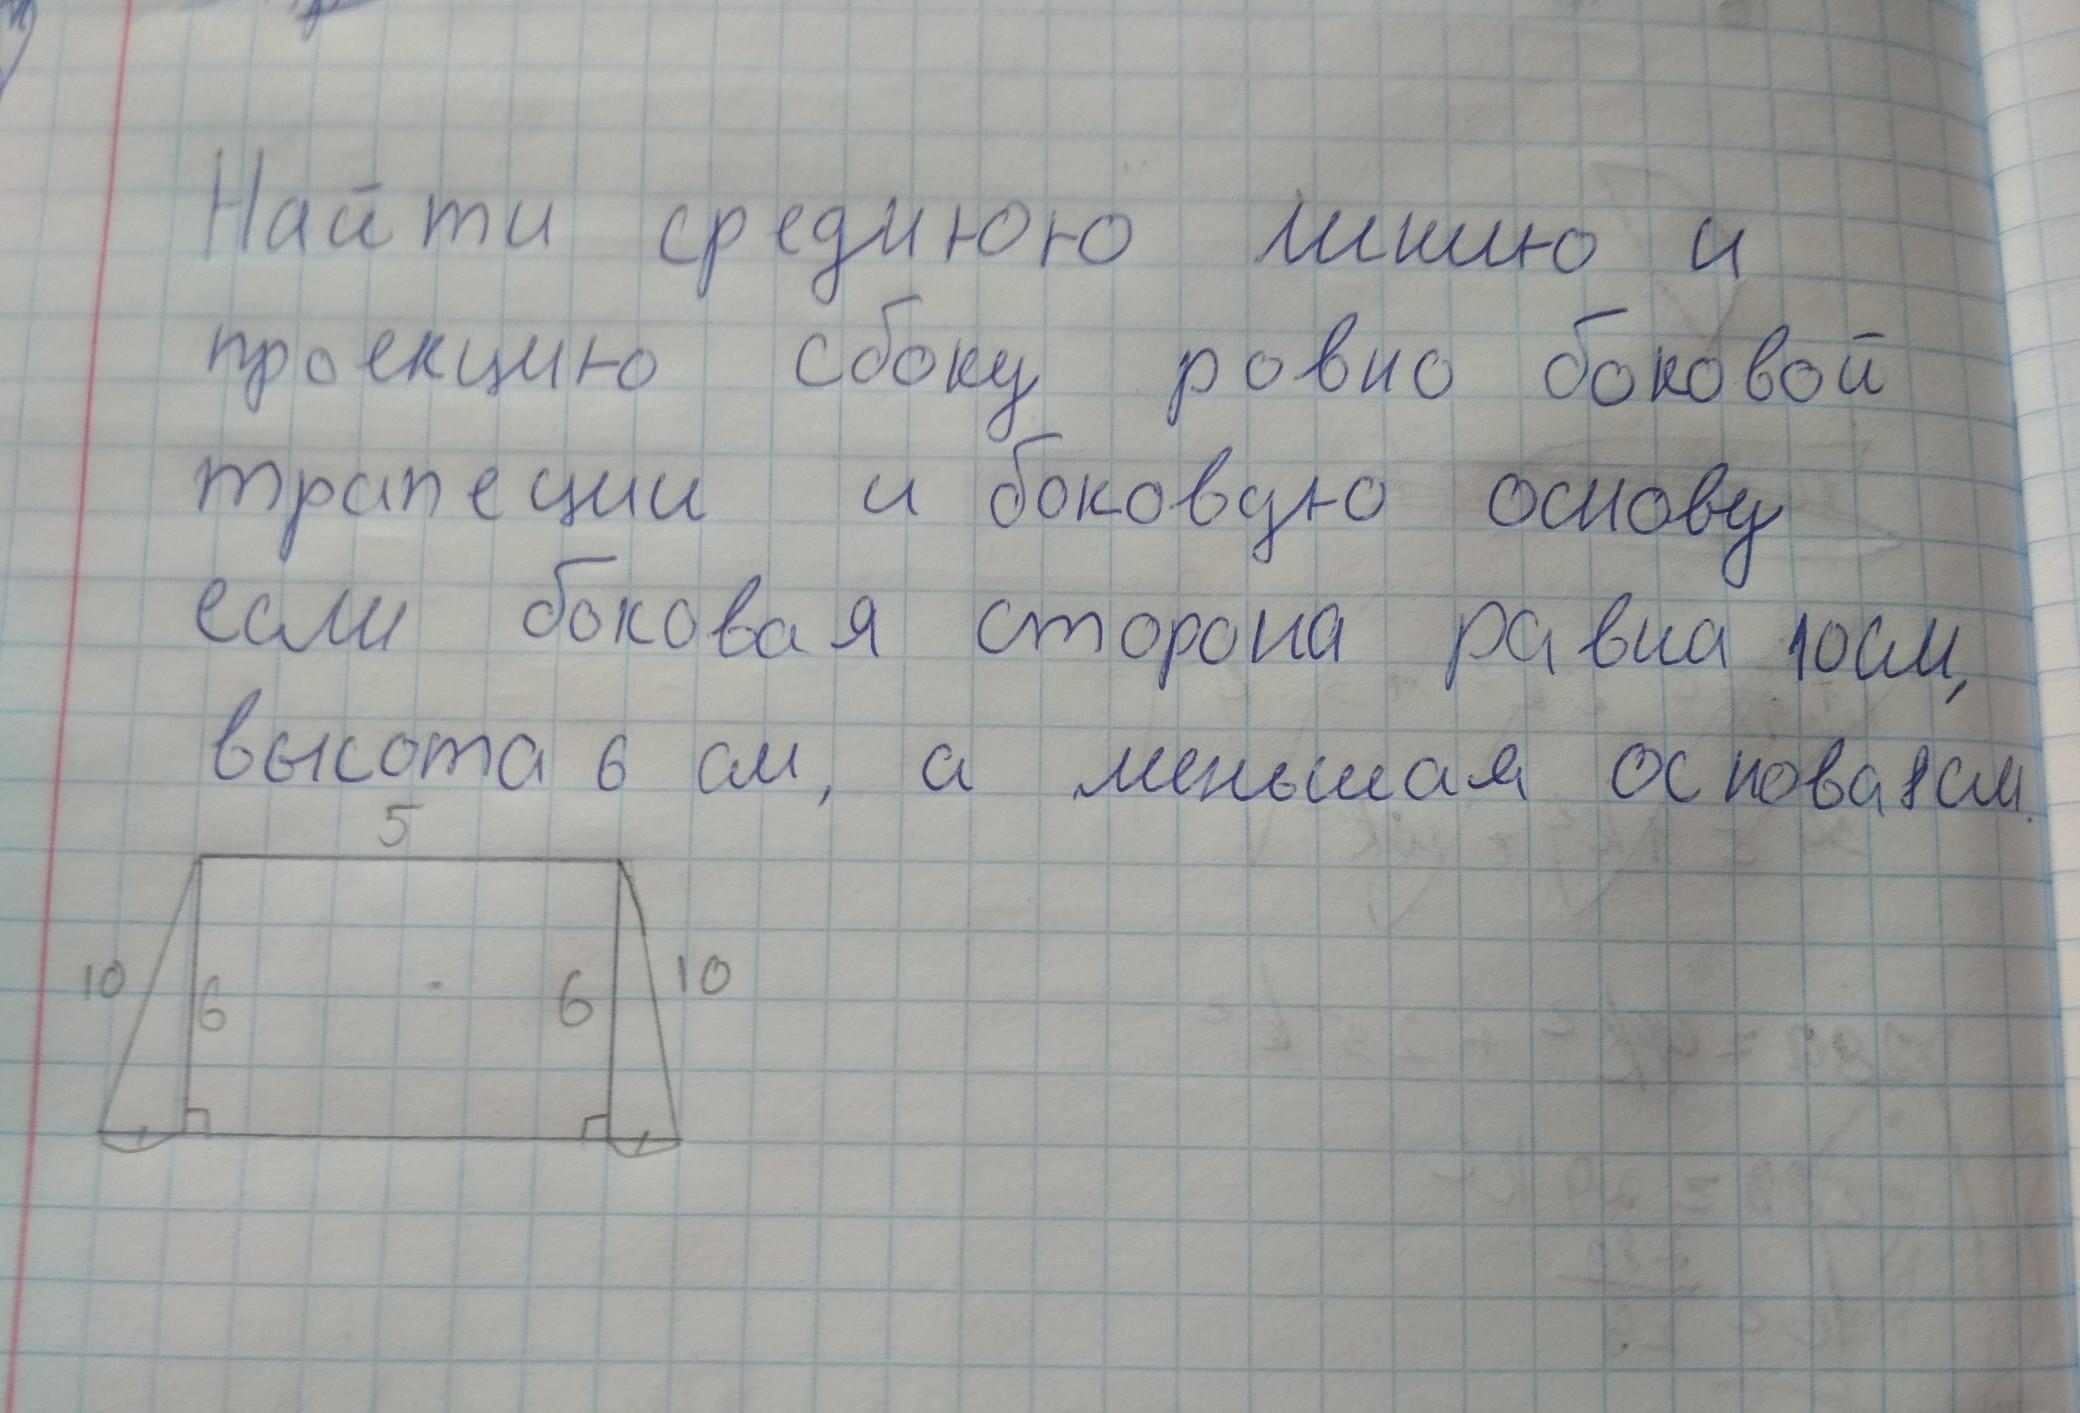 Найти среднюю линию и
проекцию сбоку ровно боковой
трапеции и боковую основу
если боковая сторона равна 10см,
высота 6 см, а меньшая основа см.
5
10 6 6 10